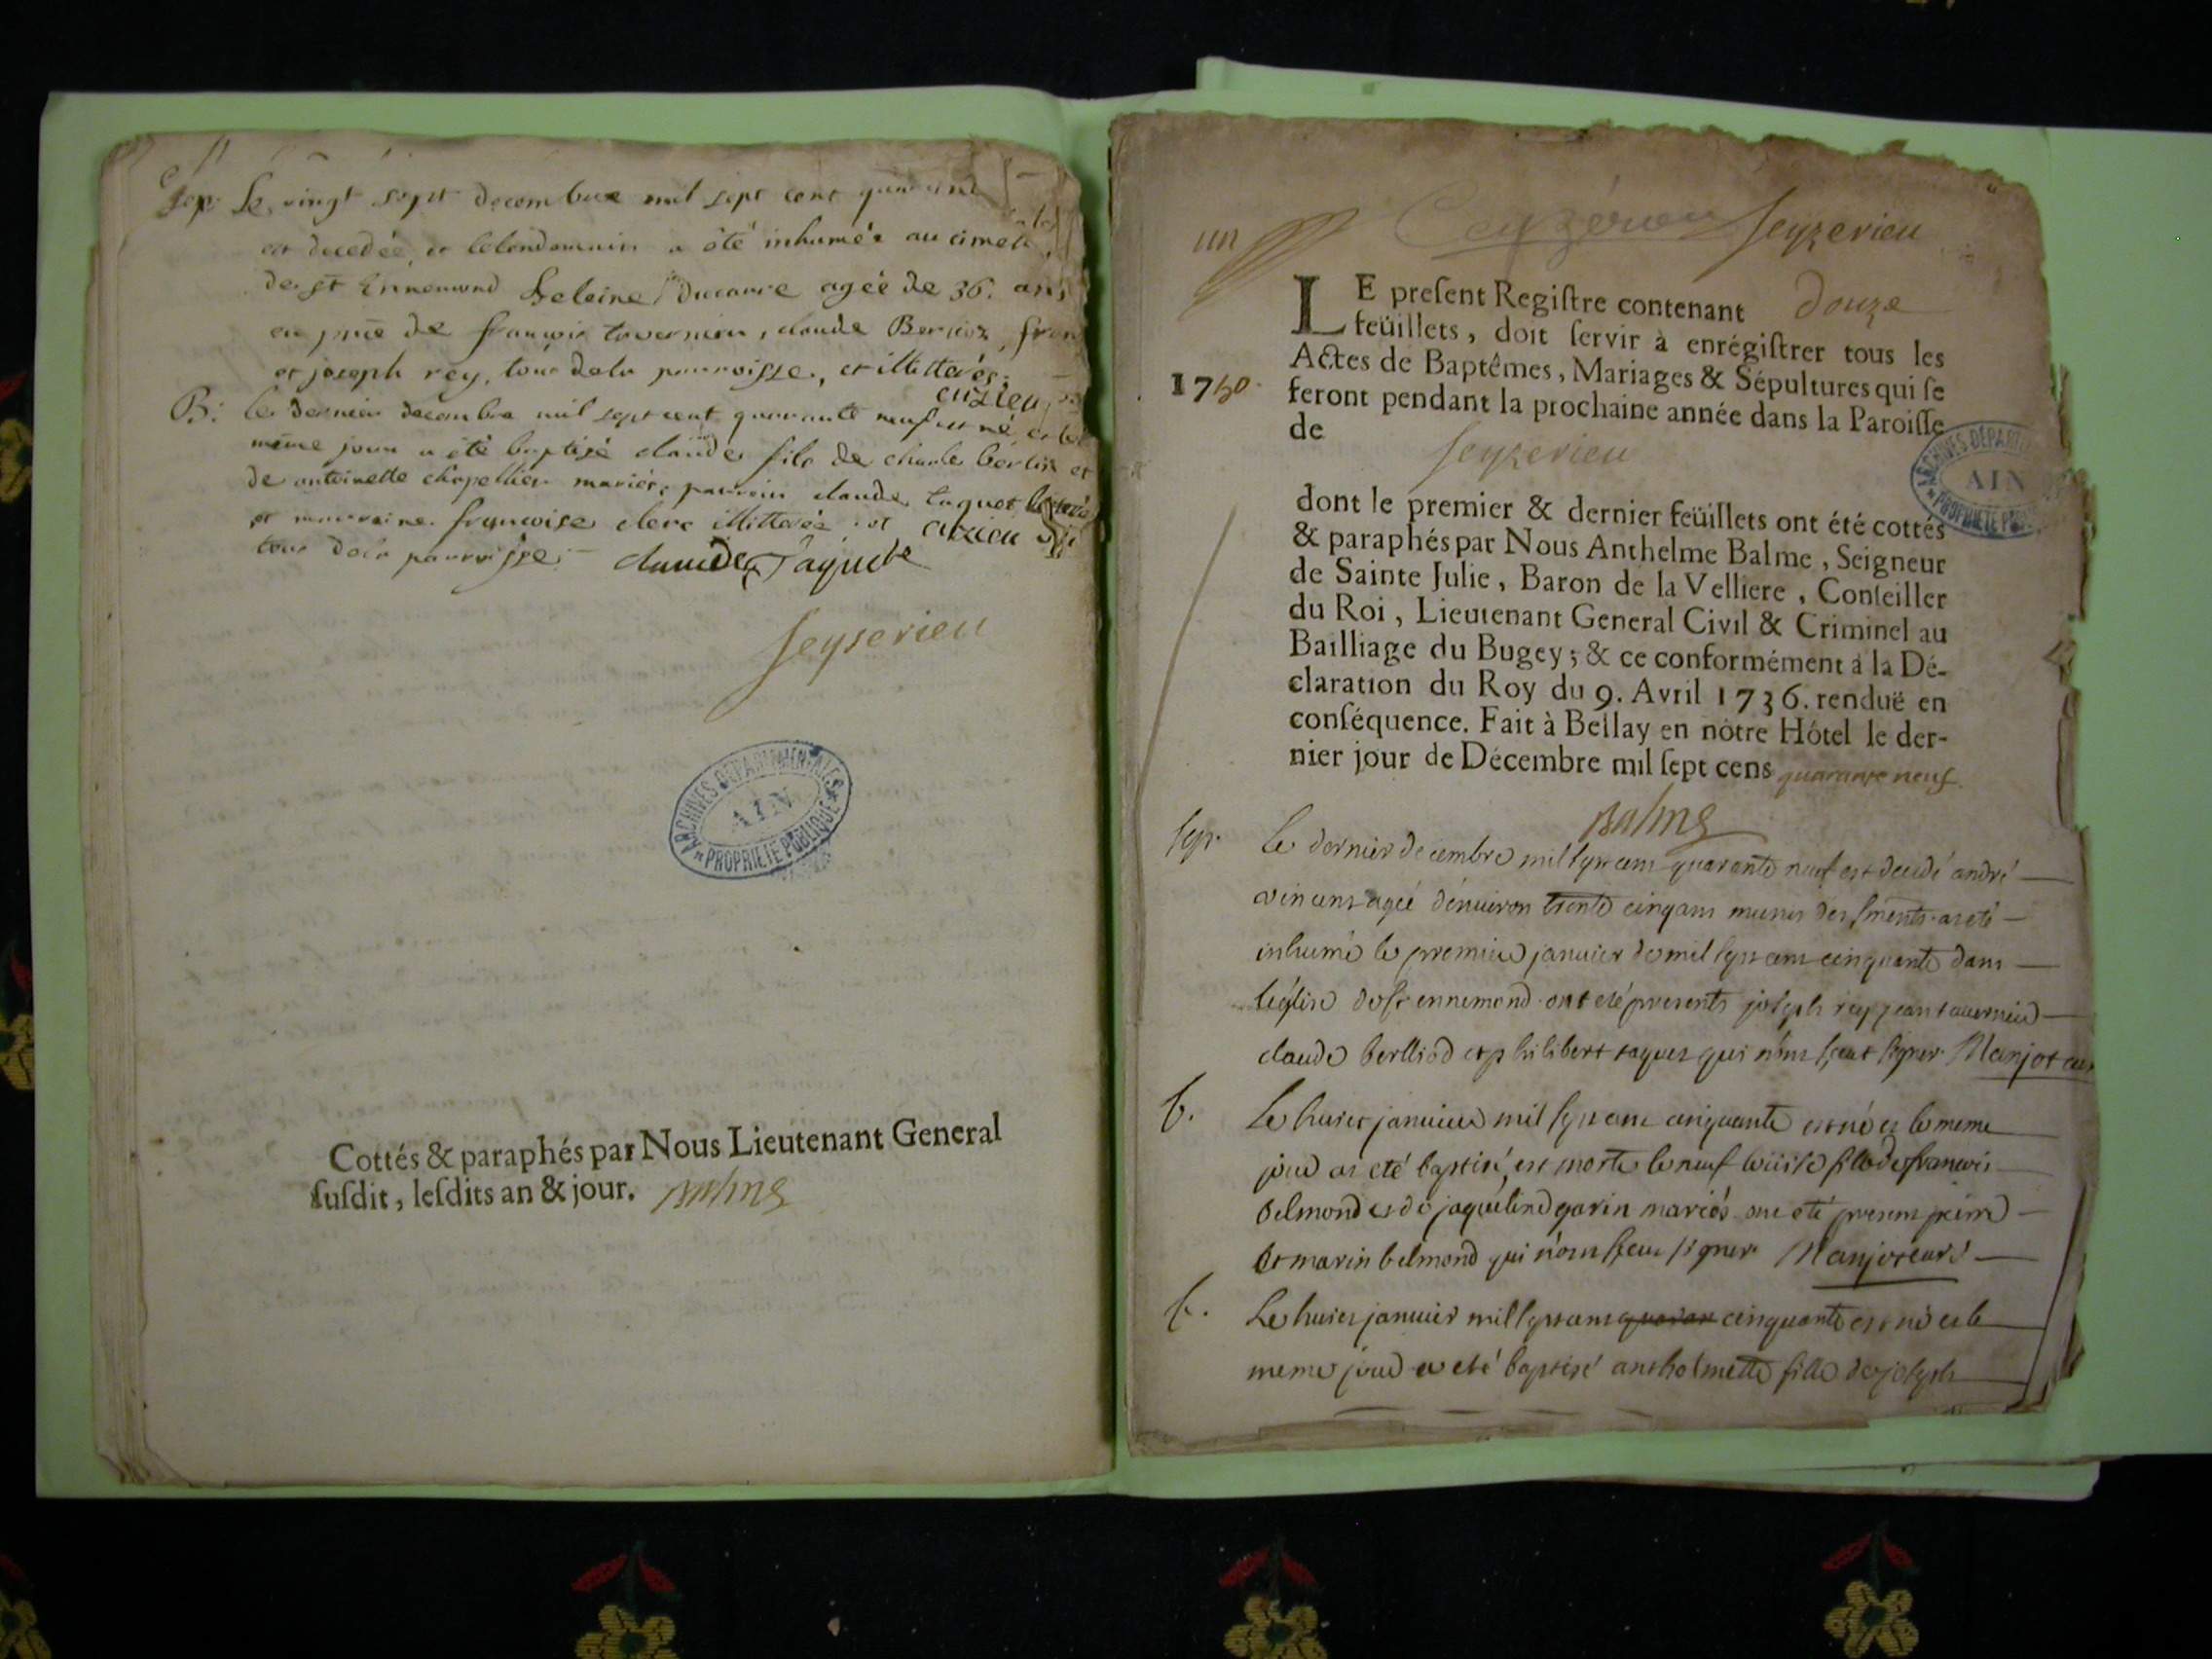 Sep. Le vingt sept decembre mil sept cent quarante
est decedée, et le lendemain a été inhumée au cimeti
de st Ennemond heleine Ducarre agée de 36. ans
en pnce de françois tavernier, claude Berlioz, fran
et joseph rey, tous dela parroisse, et illitterés.
cuzieu
B. le dernier decembre mil sept cent quarante neuf est né, et le
même jour a été baptisé claude fils de charle berlioz et
de antoinette chapellier mariés, parrain claude taquet
et marraine françoise clerc illitterée et cuzieu
tous dela parroisse. claude Taquete
Seyserieu
ARCHIVES DÉPARTEMENTALES
AIN
PROPRIÉTÉ PUBLIQUE
Cottés & paraphés par Nous Lieutenant General
ſuſdit, leſdits an & jour. Balme
un Ceyzérieu Seyzerieu
LE preſent Regiſtre contenant douze
feüillets, doit ſervir à enrégiſtrer tous les
Actes de Baptêmes, Mariages & Sépultures qui ſe
1750. feront pendant la prochaine année dans la Paroiſſe
de
Seyzerieu
ARCHIVES DÉPART
AIN
PROPRIÉTÉ PU
dont le premier & dernier feüillets ont été cottés
& paraphés par Nous Anthelme Balme, Seigneur
de Sainte Julie, Baron de la Velliere, Conſeiller
du Roi, Lieutenant General Civil & Criminel au
Bailliage du Bugey; & ce conformément à la Dé-
claration du Roy du 9. Avril 1736. renduë en
conſéquence. Fait à Bellay en nôtre Hôtel le der-
nier jour de Décembre mil ſept cens quarante neuf.
Balme
Sep. Le dernier decembre mil sept cens quarante neuf est decedé andré
vincent agée d'enuiron trente cinq ans munis des sments a eté
inhumé le premier januier de mil sept cens cinquante dans
l'église de st ennemond ont eté presents joseph rey jean tauernier
claude berlliod et philibert taquet qui n'ont sçeut signer Manjot curé
b. Le huict januier mil sept cens cinquante est né et le meme
jour a eté baptisé, est morte le neuf loüise fille de francois
belmond et de jaqueline garin mariés ont eté presens pierre
et marin belmond qui n'ont sçeus signer Manjot curé
b. Le huict januier mil sept cens quaran cinquante est né et le
meme jour a eté baptisé anthelmette fille de joseph